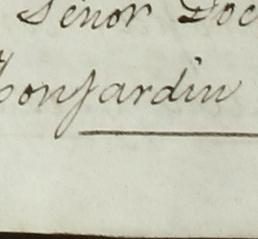 Señor Doc
Monjardin